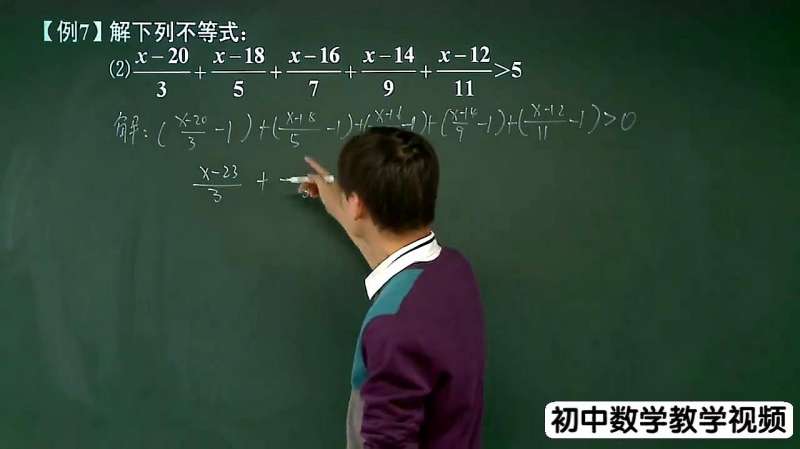 【例7】解下列不等式:
(2) x-20/3 + x-18/5 + x-16/7 + x-14/9 + x-12/11 >5
解: ( x-20/3 -1 ) + ( x-18/5 -1 ) + -1 ) + ( x-14/9 -1 ) + ( x-12/11 -1 ) > 0
x-23/3 +
初中数学教学视频